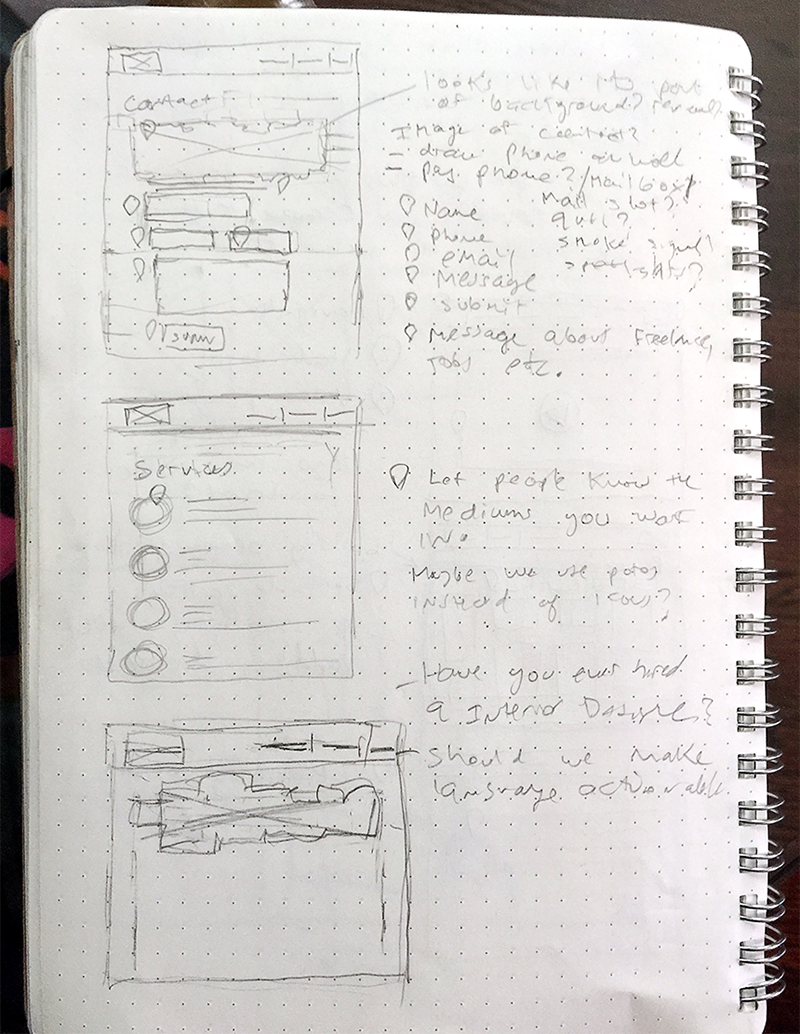 Contact
looks like its part
of background? reveal?
Image of contact?
- draw phone on wall
- pay phone? / Mailbox?
Mail slot?
Name
quill?
phone
smoke signal?
email
Message
submit
Message about Freelance,
Jobs etc.
Submit
Services
Let people know the
Mediums you work
IN.
Maybe we use photos
instead of icons?
Have you ever hired
a Interior Designer?
Should we make
language actionable.